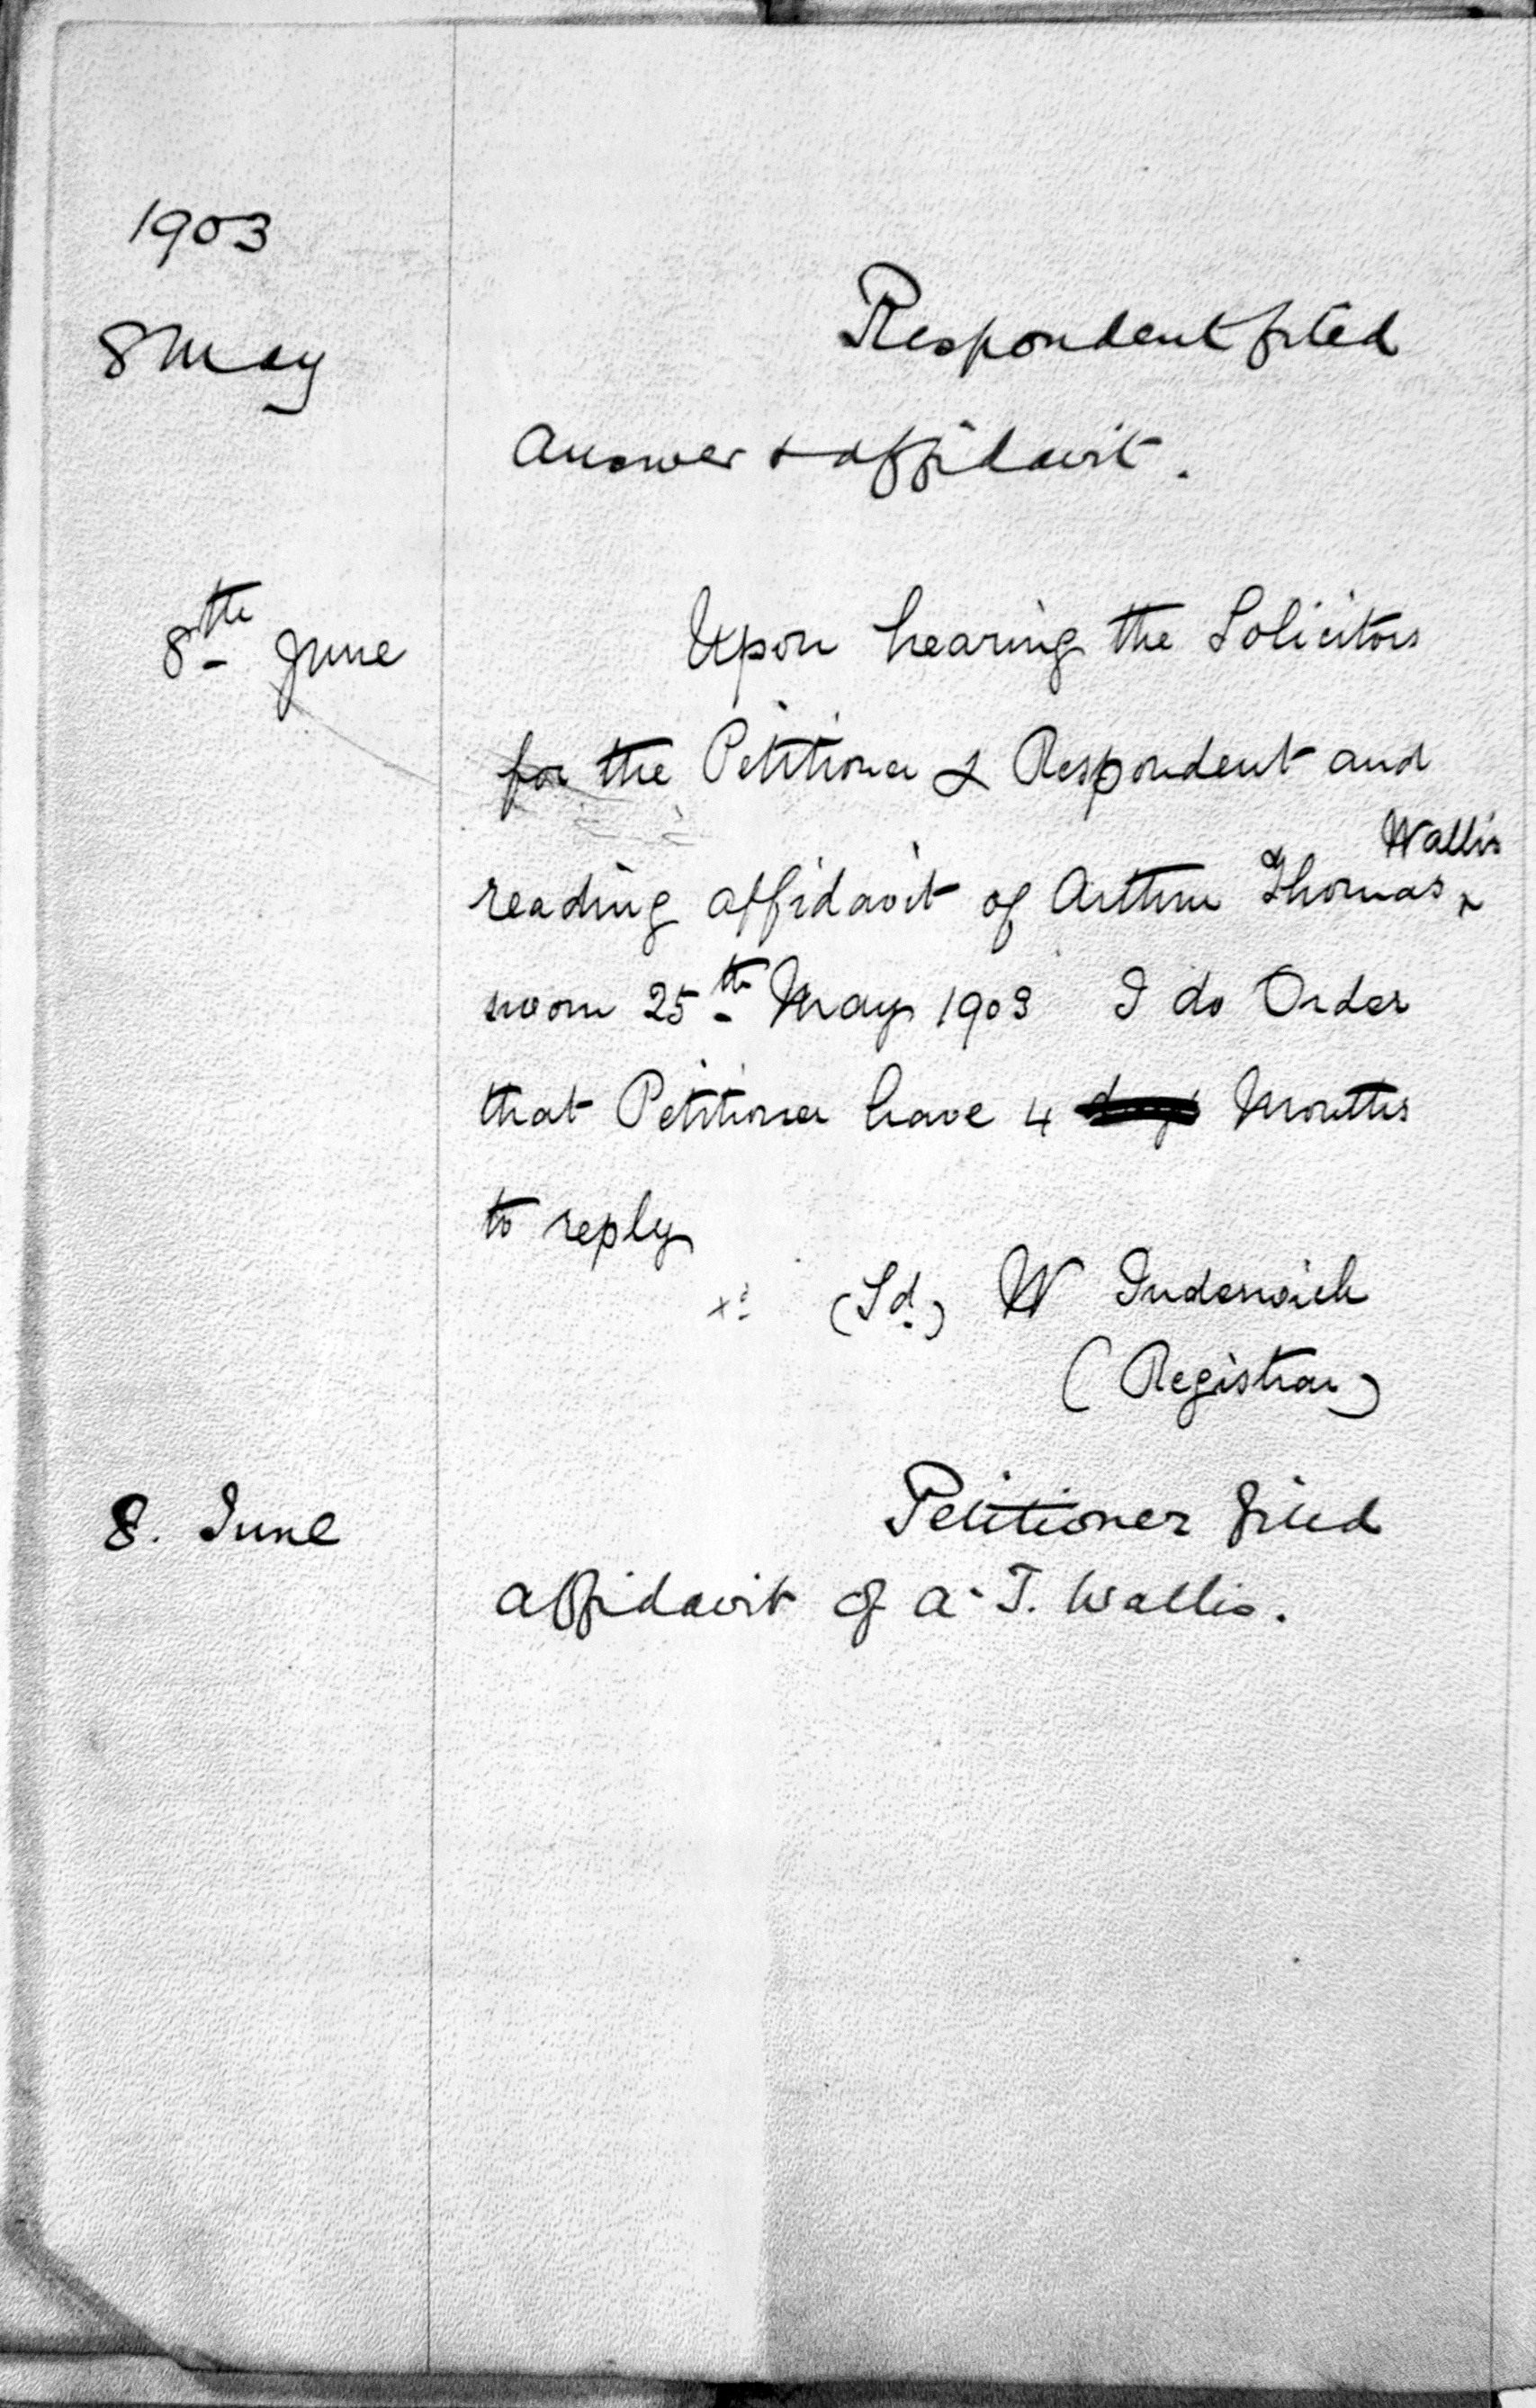 1903
8 May Respondent filed
answer & affidavit.
8th June Upon hearing the Solicitors
for the Petitioner & Respondent and
reading affidavit of Arthur Thomas Wallis
sworn 25th May 1903 I do Order
that Petitioner have 4 days Months
to reply
(Sd.) W Inderwick
(Registrar)
8. June Petitioner filed
affidavit of A. T. Wallis.